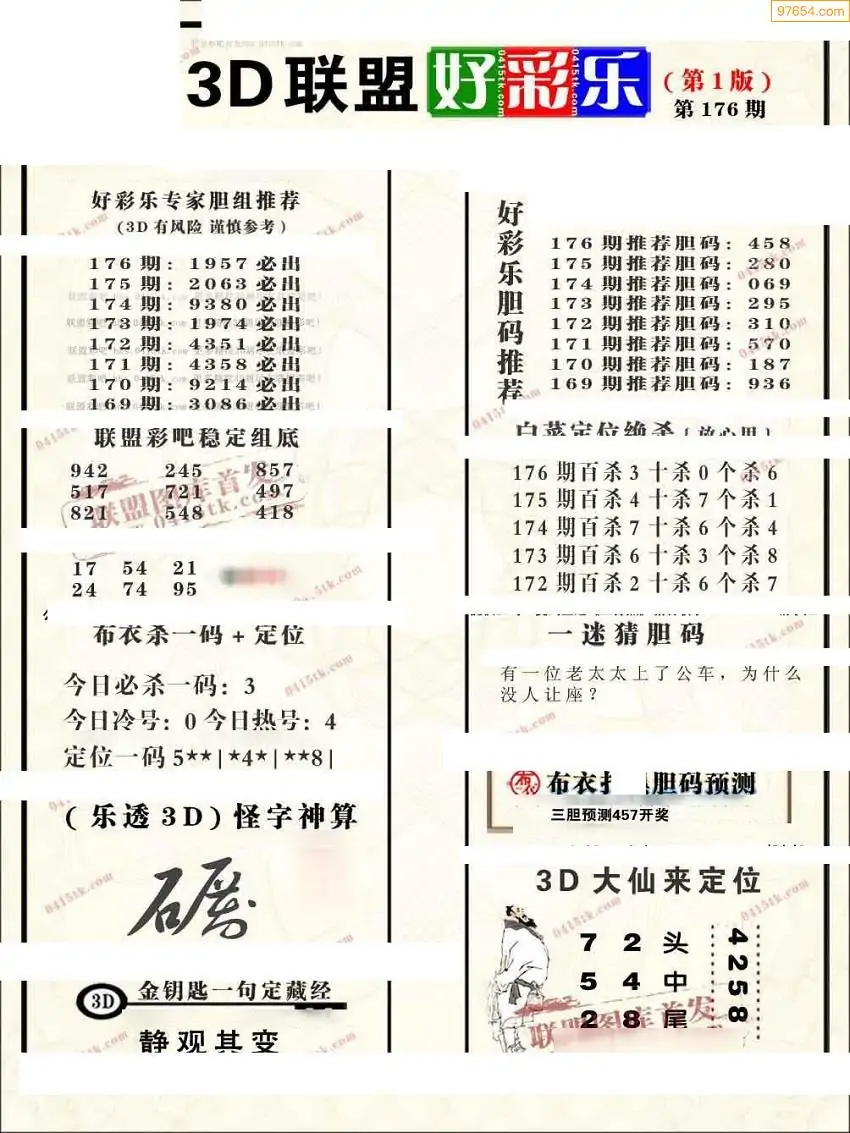 97654.com
3D联盟好彩乐
(第1版)
第176期
好彩乐专家胆组推荐
(3D有风险 谨慎参考)
176期: 1957必出
175期: 2063必出
174期: 9380必出
173期: 1974必出
172期: 4351必出
171期: 4358必出
170期: 9214必出
169期: 3086必出
联盟彩吧稳定组底
942 245 857
517 721 497
821 548 418
联盟图库首发
17 54 21
24 74 95
布衣杀一码+定位
今日必杀一码: 3
今日冷号: 0 今日热号: 4
定位一码5**|*4*|**8|
(乐透3D)怪字神算
3D 金钥匙一句定藏经
静观其变
好彩乐胆码推荐
176期推荐胆码: 458
175期推荐胆码: 280
174期推荐胆码: 069
173期推荐胆码: 295
172期推荐胆码: 310
171期推荐胆码: 570
170期推荐胆码: 187
169期推荐胆码: 936
白菜定位绝杀(放心用)
176期百杀3十杀0个杀6
175期百杀4十杀7个杀1
174期百杀7十杀6个杀4
173期百杀6十杀3个杀8
172期百杀2十杀6个杀7
一迷猜胆码
有一位老太太上了公车,为什么
没人让座?
布衣 胆码预测
三胆预测457开奖
3D大仙来定位
7 2 头
5 4 中
2 8 尾
4258
联盟图库首发
0415tk.com